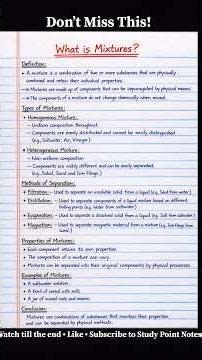 Don't Miss This!
What is Mixtures?
Definition:
• A mixture is a combination of two or more substances that are physically
combined and retain their individual properties.
→ Mixtures are made up of components that can be separated by physical means.
→ The components of a mixture do not change chemically when mixed.
Types of Mixtures:
• Homogeneous Mixture:
– Uniform composition throughout.
– Components are evenly distributed and cannot be easily distinguished
(e.g., Saltwater, Air, Vinegar)
• Heterogeneous Mixture:
– Non-uniform composition.
– Components are visibly different and can be easily separated.
(e.g., Salad, Sand and Iron Filings)
Methods of Separation:
• Filtration:- Used to separate an insoluble solid from a liquid (e.g. Sand from water)
• Distillation:- Used to separate components of a liquid mixture based on different
boiling points (e.g.
• Evaporation:- Used to separate a dissolved solid from a liquid (e.g. Salt from saltwater)
• Magnetism:- Used to separate magnetic material from a mixture (e.g. Iron filings from
sand)
Properties of Mixtures:
• Each component retains its own properties.
• The composition of a mixture can vary.
• Mixtures can be separated into their original components by physical processes.
Examples of Mixtures:
• A saltwater solution
• A bowl of cereal with milk
• A jar of mixed nuts and raisins.
Conclusion:
Mixtures are combinations of substances that maintain their properties
and can be separated by physical methods.
Watch till the end • Like • Subscribe to Study Point Notes